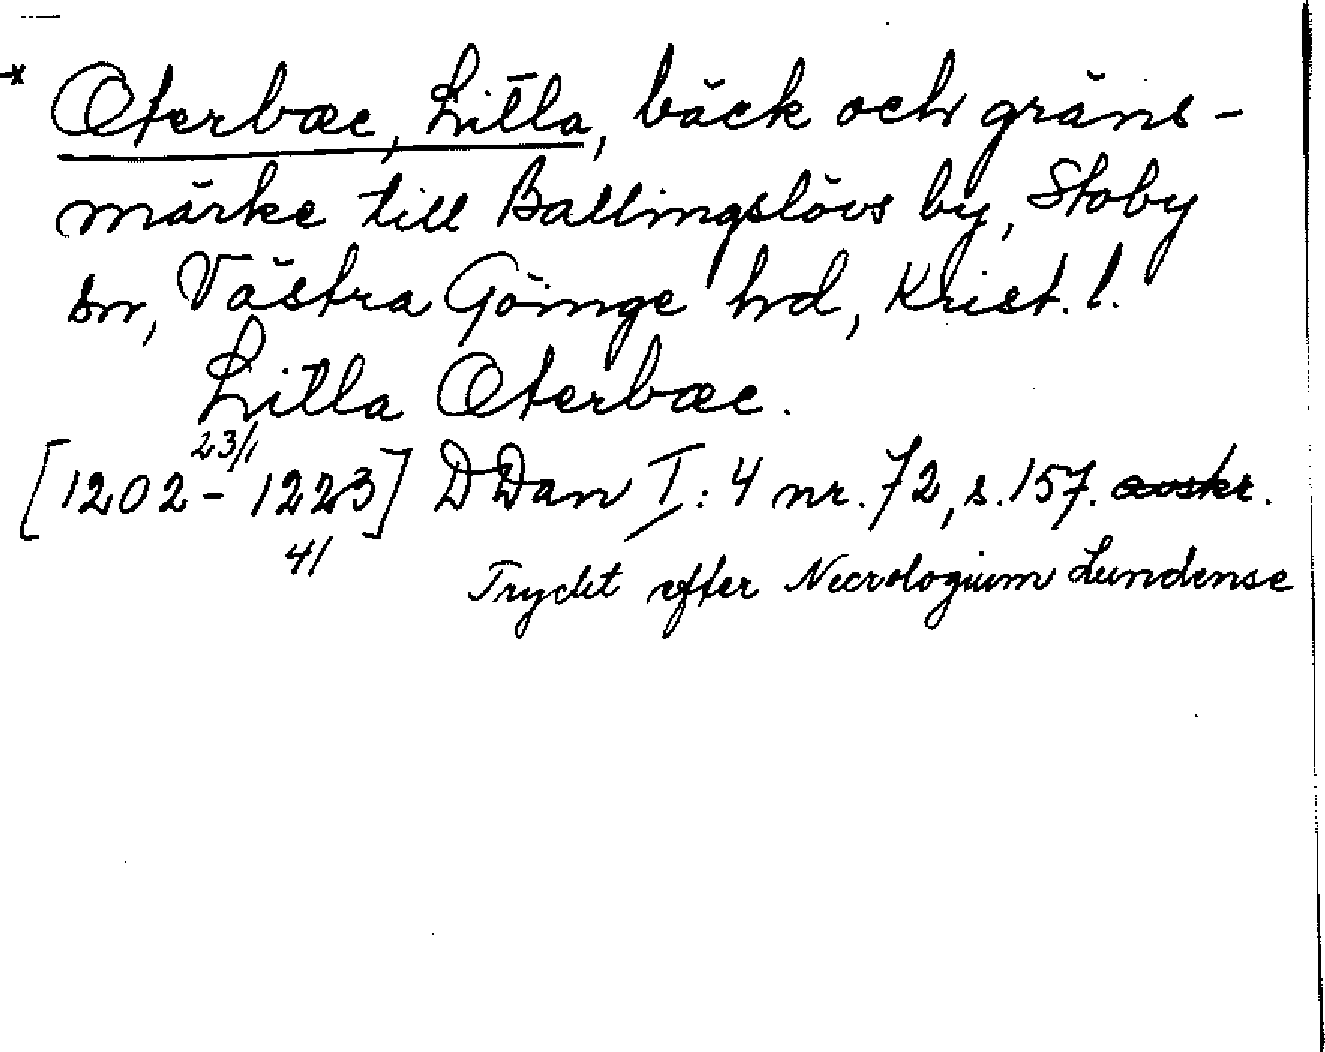 x Oterbæc, Litla, bäck och gräns-
märke till Ballingslövs by, Stoby
sn, Västra Göinge hd, Krist. l.
Litla Oterbæc.
23/1
[1202 - 1223] DDan I: 4 nr. 72, s. 157. avskr.
4/
Tryckt efter Necrologium Lundense